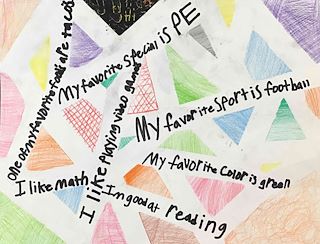 One of my favorite foods are tacos
My favorite special is PE
I like playing video games
My favorite sport is football
My favorite color is green
I like math
Im good at reading